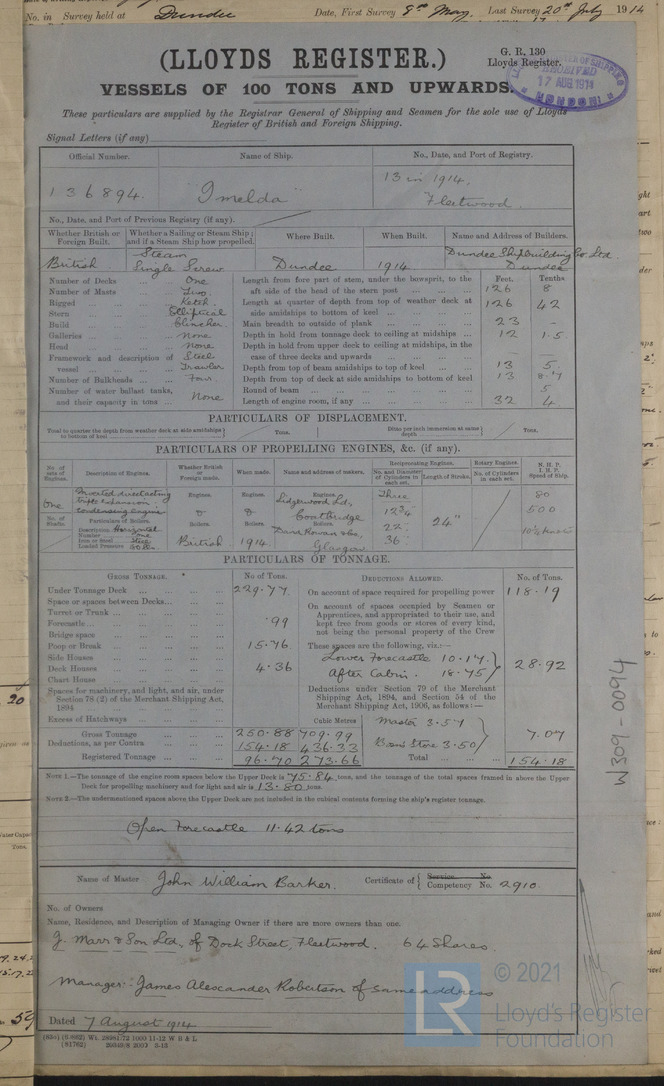 No. in Survey held at Dundee Date, First Survey 8th May, Last Survey 20th July 1914
(LLOYDS REGISTER.)
G. R. 130
Lloyds Register.
VESSELS OF 100 TONS AND UPWARDS.
LLOYD'S REGISTER OF SHIPPING
RECEIVED
17 AUG 1914
LONDON
These particulars are supplied by the Registrar General of Shipping and Seamen for the sole use of Lloyds
Register of British and Foreign Shipping.
Signal Letters (if any)
Official Number. Name of Ship. No., Date, and Port of Registry.
136894. "Imelda" 13 in 1914.
Fleetwood.
No., Date, and Port of Previous Registry (if any).
Whether British or Foreign Built. Whether a Sailing or Steam Ship; and if a Steam Ship how propelled. Where Built. When Built. Name and Address of Builders.
British Steam Single Screw Dundee 1914 Dundee Shipbuilding Co. Ltd. Dundee
Number of Decks One
Number of Masts Two
Rigged Ketch.
Stern Elliptical
Build Clincher.
Galleries None
Head None
Framework and description of vessel Steel Trawler
Number of Bulkheads Four.
Number of water ballast tanks, and their capacity in tons None
Feet. Tenths
Length from fore part of stem, under the bowsprit, to the aft side of the head of the stern post 126 8
Length at quarter of depth from top of weather deck at side amidships to bottom of keel 126 42
Main breadth to outside of plank 23 -
Depth in hold from tonnage deck to ceiling at midships 12 1.5
Depth in hold from upper deck to ceiling at midships, in the case of three decks and upwards -
Depth from top of beam amidships to top of keel 13 5
Depth from top of deck at side amidships to bottom of keel 13
Round of beam 5
Length of engine room, if any 32 4
PARTICULARS OF DISPLACEMENT.
Total to quarter the depth from weather deck at side amidships to bottom of keel Tons. Ditto per inch immersion at same depth Tons.
PARTICULARS OF PROPELLING ENGINES, &c. (if any).
No. of sets of Engines. Description of Engines. Whether British or Foreign made. When made. Name and address of makers. Reciprocating Engines. Rotary Engines. N.H.P. I.H.P. Speed of Ship.
No. and Diameter of Cylinders in each set. Length of Stroke. No. of Cylinders in each set.
One Inverted direct acting triple expansion condensing engine
Engines. Engines. Engines. Coatbridge Three 80
12¾" 500
22" 24" 10½ knots
36"
No. of Shafts. Particulars of Boilers.
Description Horizontal
Number One
Iron or Steel Steel
Loaded Pressure
Boilers. British Boilers. 1914 Boilers. David Rowan & Co, Glasgow
PARTICULARS OF TONNAGE.
GROSS TONNAGE. No of Tons. DEDUCTIONS ALLOWED. No. of Tons.
Under Tonnage Deck 229.77
Space or spaces between Decks
Turret or Trunk
Forecastle .99
Bridge space
Poop or Break 15.76
Side Houses
Deck Houses 4.36
Chart House
Spaces for machinery, and light, and air, under Section 78 (2) of the Merchant Shipping Act, 1894
Excess of Hatchways
Cubic Metres
Gross Tonnage 250.88 709.99
Deductions, as per Contra 154.18 436.33
Registered Tonnage 96.70 273.66
On account of space required for propelling power 118.19
On account of spaces occupied by Seamen or Apprentices, and appropriated to their use, and kept free from goods or stores of every kind, not being the personal property of the Crew
These spaces are the following, viz.:—
Lower Forecastle 10.17
After Cabin. 18.75 28.92
Deductions under Section 79 of the Merchant Shipping Act, 1894, and Section 54 of the Merchant Shipping Act, 1906, as follows:—
Master 3.57
Bosn Store 3.50 7.07
Total 154.18
NOTE 1.—The tonnage of the engine room spaces below the Upper Deck is 75.84 tons, and the tonnage of the total spaces framed in above the Upper
Deck for propelling machinery and for light and air is 13.80 tons.
NOTE 2.—The undermentioned spaces above the Upper Deck are not included in the cubical contents forming the ship's register tonnage.
Open Forecastle 11.42 tons
Name of Master John William Barker. Certificate of Service. No Competency No. 2910.
No. of Owners
Name, Residence, and Description of Managing Owner if there are more owners than one.
J. Marr & Son Ltd, of Dock Street, Fleetwood. 64 Shares.
Manager:- James Alexander Robertson of same address
Dated 7 August 1914
W309-0094
© 2021
LR
Lloyd's Register
Foundation